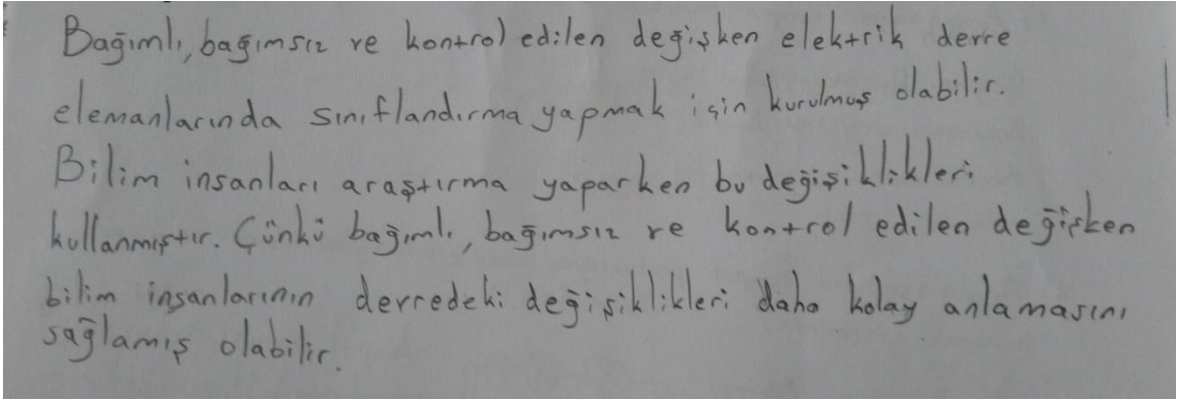 Bağımlı, bağımsız ve kontrol edilen değişken elektrik devre
elemanlarında sınıflandırma yapmak için kurulmuş olabilir.
Bilim insanları araştırma yaparken bu değişiklikleri
kullanmıştır. Çünkü bağımlı, bağımsız ve kontrol edilen değişken
bilim insanlarının devredeki değişiklikleri daha kolay anlamasını
sağlamış olabilir.